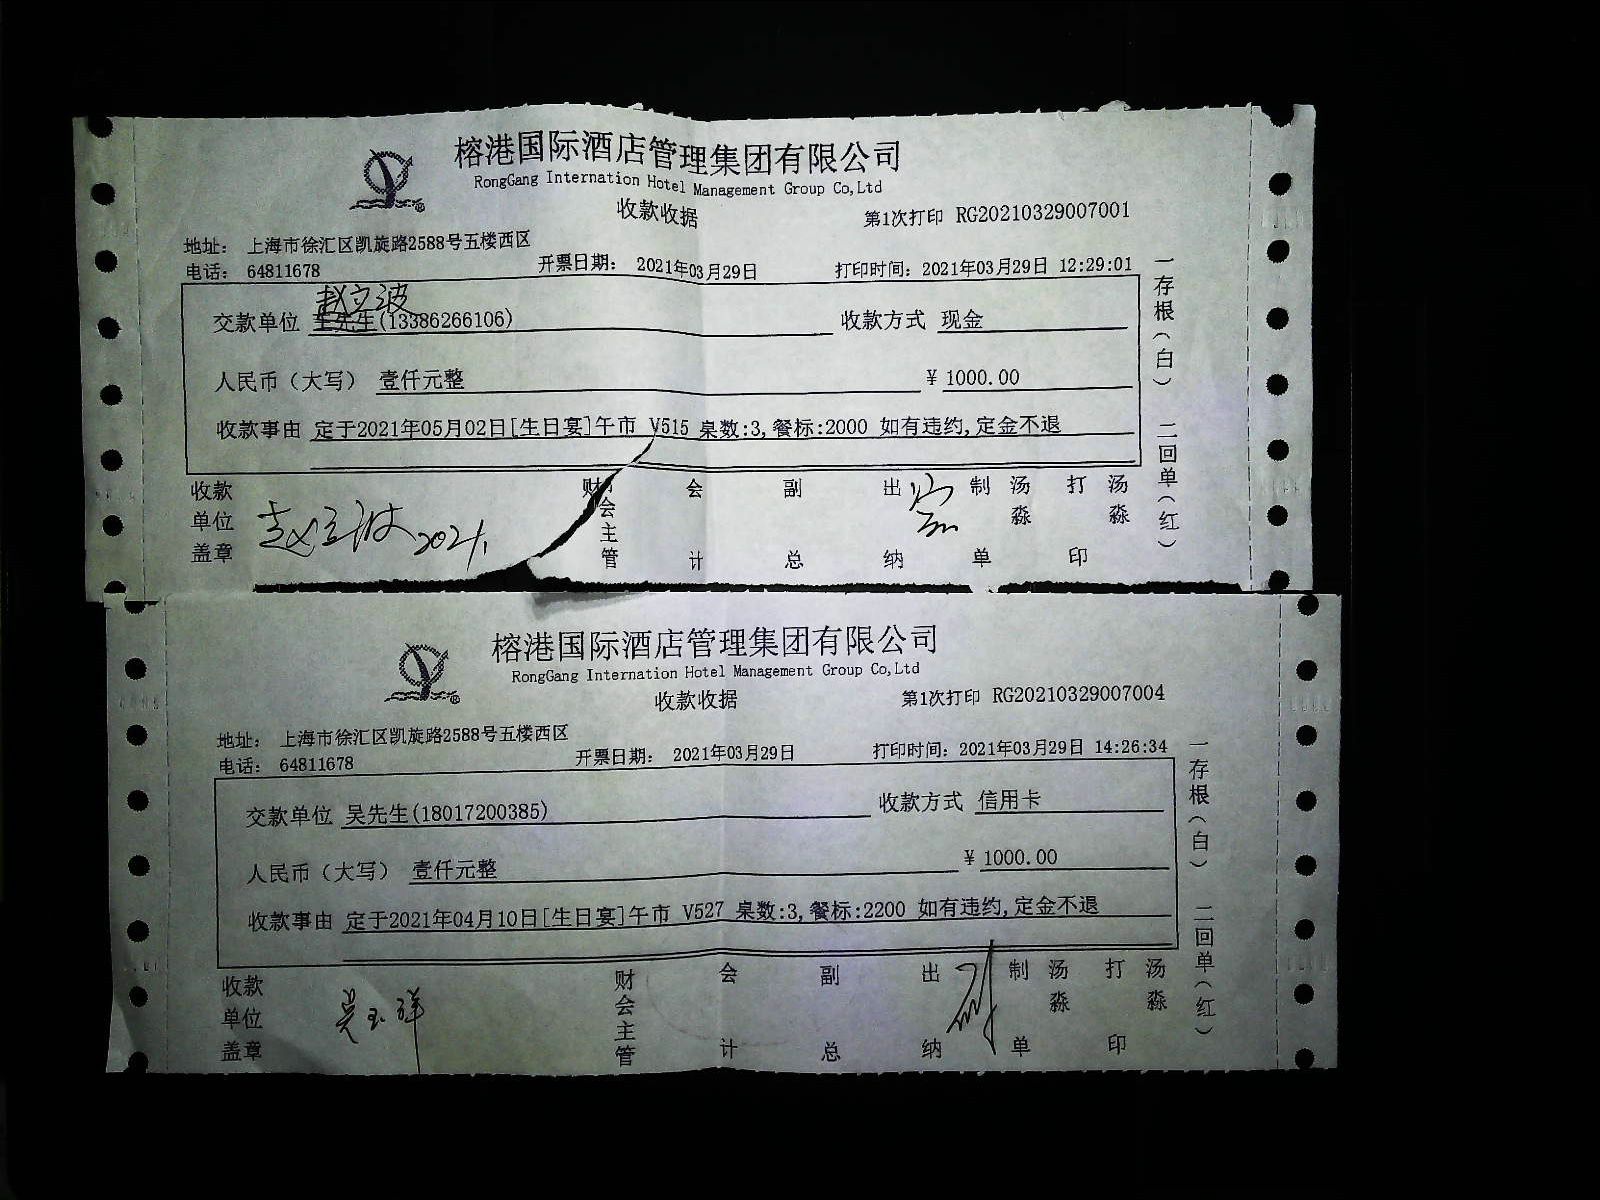 榕港国际酒店管理集团有限公司
RongGang Internation Hotel Management Group Co,Ltd
收款收据
第1次打印 RG20210329007001
地址： 上海市徐汇区凯旋路2588号五楼西区
电话： 64811678
开票日期： 2021年03月29日
打印时间：2021年03月29日 12:29:01
赵立波
交款单位 王先生(13386266106)
收款方式 现金
人民币（大写） 壹仟元整
¥ 1000.00
收款事由 定于2021年05月02日[生日宴]午市 V515 桌数:3,餐标:2000 如有违约,定金不退
收款单位盖章
赵立波 2021.
财会主管
会计
副总
出纳
制单
汤淼
打印
汤淼
一存根（白） 二回单（红）
榕港国际酒店管理集团有限公司
RongGang Internation Hotel Management Group Co,Ltd
收款收据
第1次打印 RG20210329007004
地址： 上海市徐汇区凯旋路2588号五楼西区
电话： 64811678
开票日期： 2021年03月29日
打印时间：2021年03月29日 14:26:34
交款单位 吴先生(18017200385)
收款方式 信用卡
人民币（大写） 壹仟元整
¥ 1000.00
收款事由 定于2021年04月10日[生日宴]午市 V527 桌数:3,餐标:2200 如有违约,定金不退
收款单位盖章
吴玉祥
财会主管
会计
副总
出纳
制单
汤淼
打印
汤淼
一存根（白） 二回单（红）